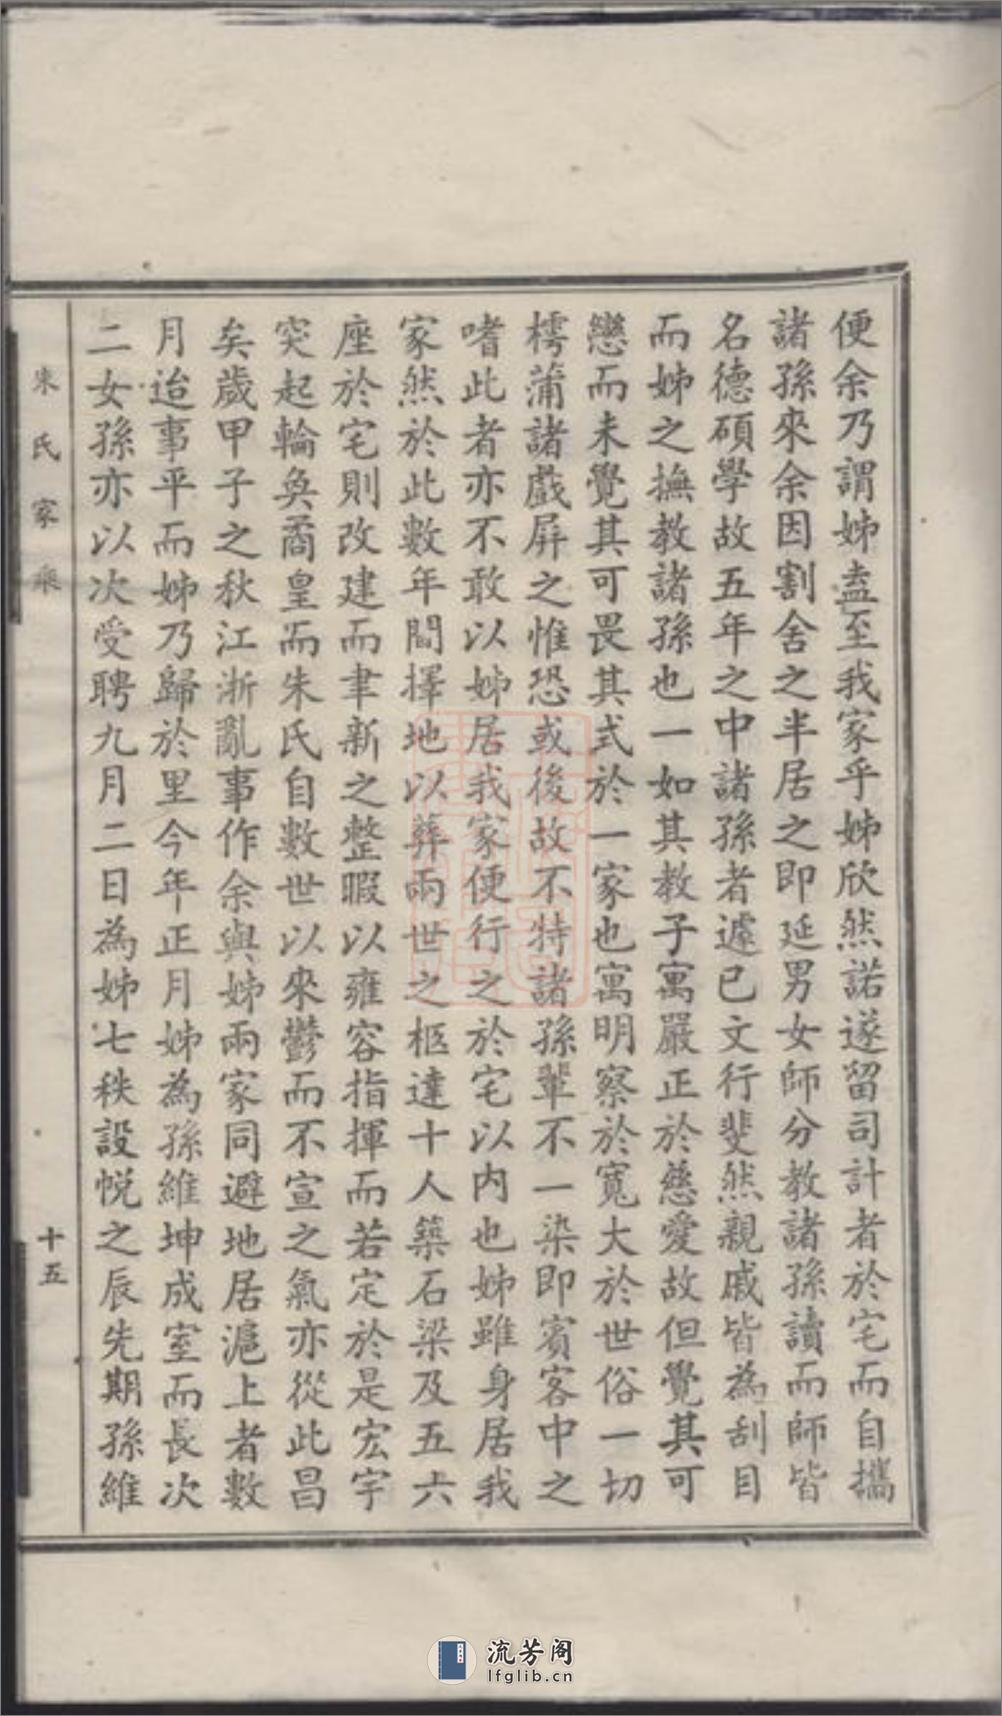 便余乃謂姊盍至我家乎姊欣然諾遂留司計者於宅而自攜
諸孫來余因割舍之半居之即延男女師分教諸孫讀而師皆
名德碩學故五年之中諸孫者遽已文行斐然親戚皆為刮目
而姊之撫教諸孫也一如其教子寓嚴正於慈愛故但覺其可
戀而未覺其可畏其式於一家也寓明察於寬大於世俗一切
樗蒲諸戲屏之惟恐或後故不特諸孫輩不一染即賓客中之
嗜此者亦不敢以姊居我家便行之於宅以內也姊雖身居我
家然於此數年間擇地以葬兩世之柩達十人築石梁及五六
座於宅則改建而聿新之整暇以雍容指揮而若定於是宏宇
突起輪奐矞皇而朱氏自數世以來鬱而不宣之氣亦從此昌
矣歲甲子之秋江浙亂事作余與姊兩家同避地居滬上者數
月迨事平而姊乃歸於里今年正月姊為孫維坤成室而長次
二女孫亦以次受聘九月二日為姊七秩設帨之辰先期孫維
朱氏家乘
十五
流芳阁
lfglib.cn